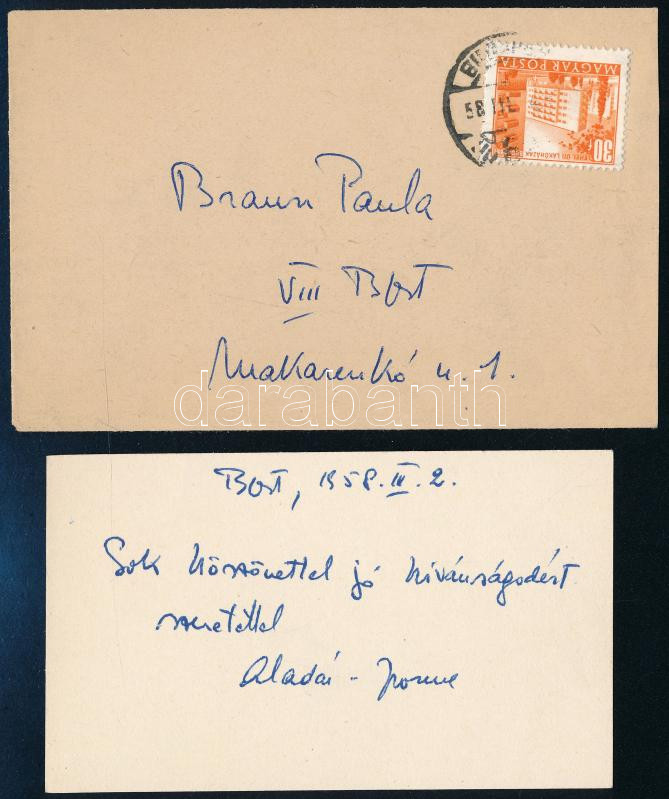 MAGYAR POSTA
30
58 III
Braun Paula
VIII Bpst
Makarenkó u. 1.
darabanth
Bpst, 1958. III. 2.
Sok köszönettel jó kívánságodért
szeretettel
Aladár -